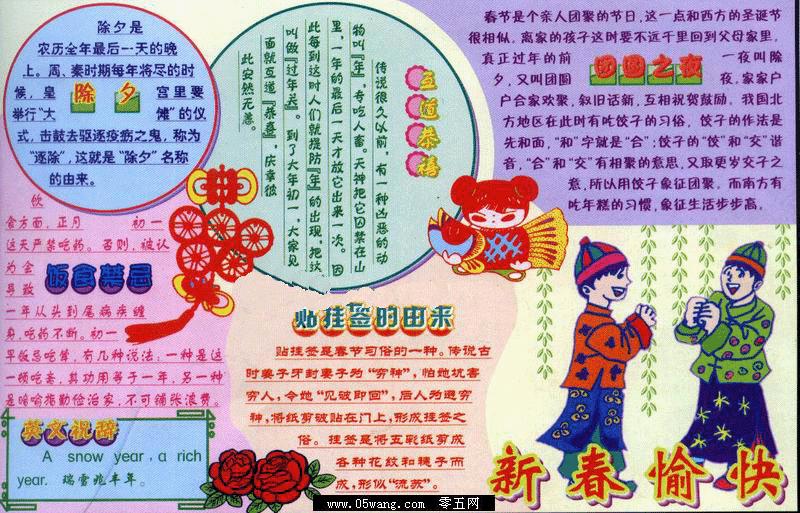 除夕是
农历全年最后一天的晚
上。周、秦时期每年将尽的时
候，皇 除夕 宫里要
举行“大 傩”的仪
式，击鼓去驱逐疫疬之鬼，称为
“逐除”，这就是“除夕”名称
的由来。
互道恭禧
传说很久以前，有一种凶恶的动
物叫『年』，专吃人畜。天神把它囚禁在山
里，一年的最后一天才放它出来一次。因
此每到这时人们就提防『年』的出现，把这
叫做『过年关』。到了大年初一，大家见
面就互道『恭喜』，庆幸彼
此安然无恙。
春节是个亲人团聚的节日，这一点和西方的圣诞节
很相似。离家的孩子这时要不远千里回到父母家里。
真正过年的前 团圆之夜 一夜叫除
夕，又叫团圆 夜，家家户
户合家欢聚，叙旧话新，互相祝贺鼓励。我国北
方地区在此时有吃饺子的习俗，饺子的作法是
先和面，“和”字就是“合”；饺子的“饺”和“交”谐
音，“合”和“交”有相聚的意思，又取更岁交子之
意，所以用饺子象征团聚。而南方有
吃年糕的习惯，象征生活步步高。
饮
食方面，正月 初一
这天严禁吃药。否则，被认
为会 饭食禁忌
导致
一年从头到尾病疾缠
身，吃药不断。初一
早饭忌吃荤，有几种说法：一种是这
一顿吃素，其功用等于一年，另一种
是 勤俭治家，不可铺张浪费。
贴挂签的由来
贴挂签是春节习俗的一种。传说古
时姜子牙封妻子为“穷神”，怕她坑害
穷人，令她“见破即回”，后人为避穷
神，将纸剪破贴在门上，形成挂签之
俗。挂签是将五彩纸剪成
各种花纹和穗子而
成，形似“流苏”。
英文祝辞
A snow year, a rich
year. 瑞雪兆丰年。
新春愉快
www.05wang.com 零五网